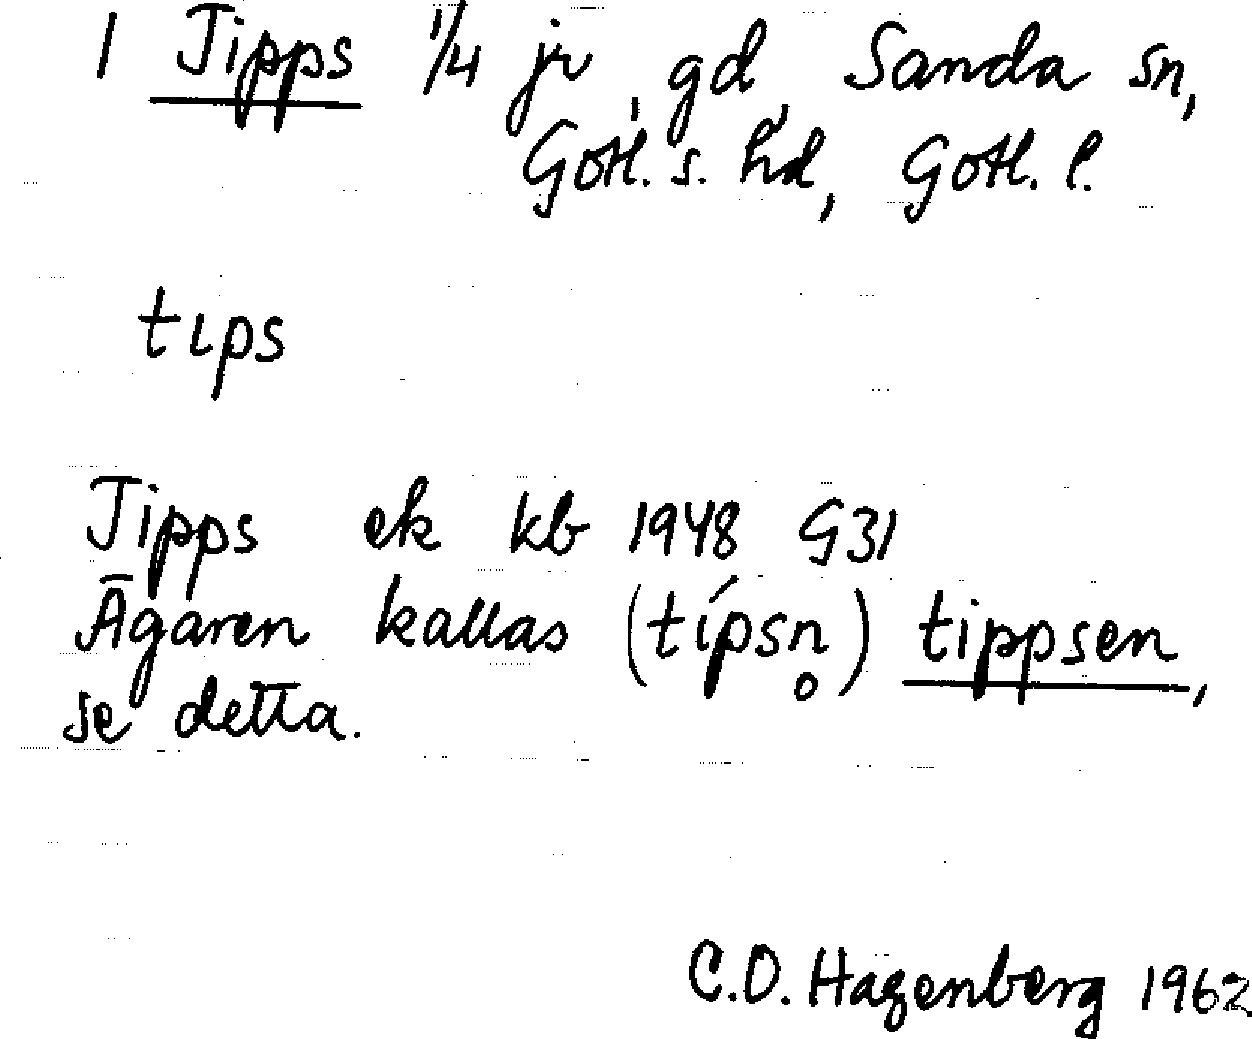 1 Tipps 1/4 jv, gd, Sanda sn,
Gotl. s. hd, Gotl. l.
tɩps
Tipps ek kb 1948 G31
Ägaren kallas (típsn̥) tippsen,
se detta.
C.O. Hagenberg 1962